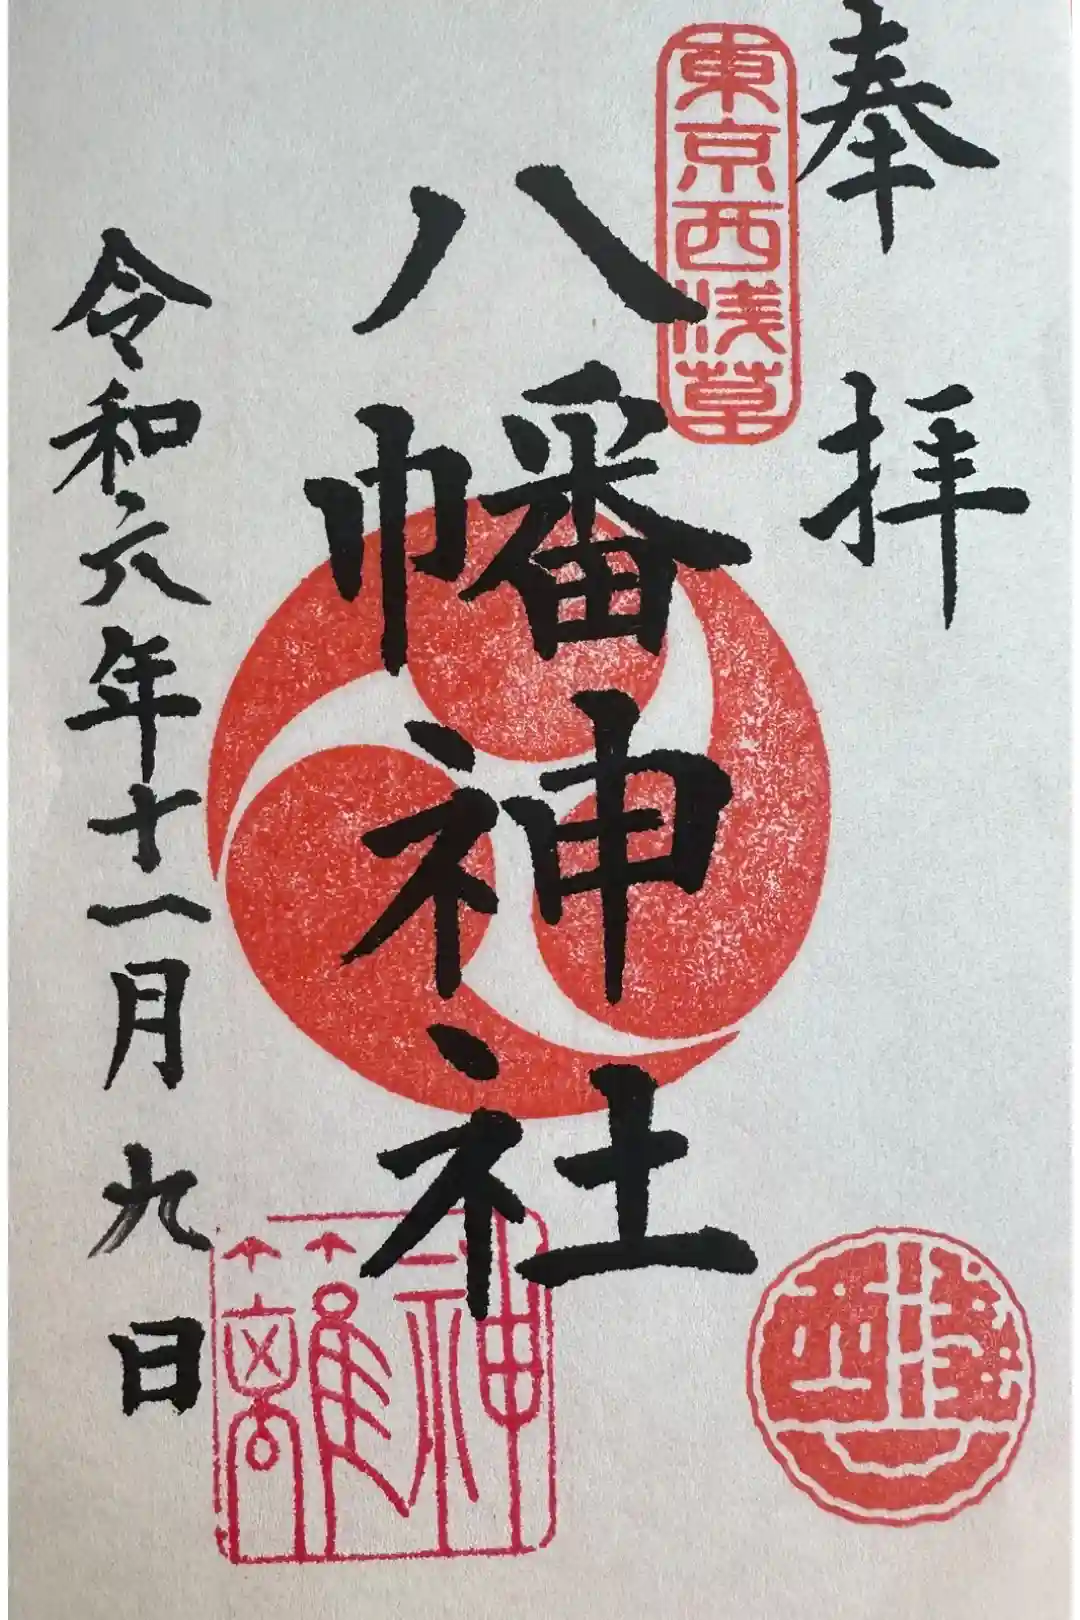 奉拝
東京西浅草
八幡神社
令和六年十一月九日